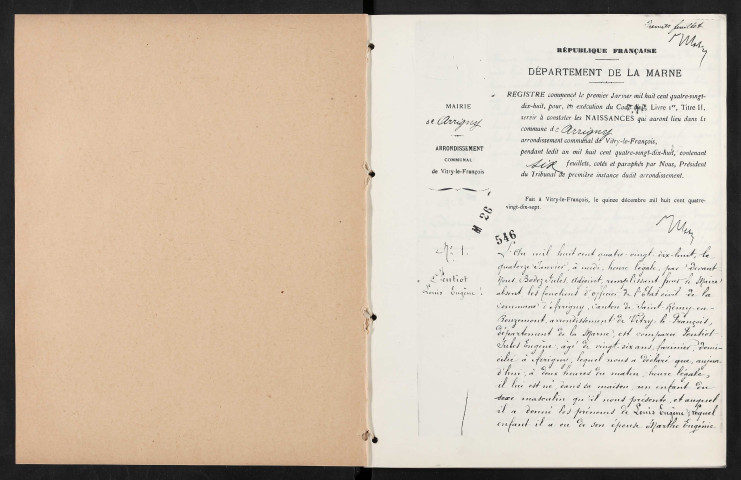 Premier feuillet
RÉPUBLIQUE FRANÇAISE
DÉPARTEMENT DE LA MARNE
MAIRIE
de Arrigny
ARRONDISSEMENT
COMMUNAL
de Vitry-le-François
REGISTRE commencé le premier Janvier mil huit cent quatre-vingt-
dix-huit, pour, en exécution du Code civil, Livre Ier, Titre II,
servir à constater les NAISSANCES qui auront lieu dans la
commune de Arrigny
arrondissement communal de Vitry-le-François,
pendant ledit an mil huit cent quatre-vingt-dix-huit, contenant
six feuillets, cotés et paraphés par Nous, Président
du Tribunal de première instance dudit arrondissement.
Fait à Vitry-le-François, le quinze décembre mil huit cent quatre-
vingt-dix-sept.
M 26
546
No 1.
Pentiot
Louis Eugène
L'an mil huit cent quatre-vingt-dix-huit, le
quatorze Janvier, à midi, heure légale, par devant
Nous, Jules, adjoint, remplissant pour le Maire
absent les fonctions d'officier de l'Etat civil de la
commune d'Arrigny, canton de Saint-Remy-en-
Bouzemont, arrondissement de Vitry-le-François,
département de la Marne, est comparu Pentiot
Jules Eugène, âgé de vingt-six ans, domi-
cilié à Arrigny, lequel nous a déclaré que, aujour-
d'hui, à deux heures du matin, heure légale,
il lui est né dans sa maison, un enfant du
sexe masculin qu'il nous présente, et auquel
il a donné les prénoms de Louis Eugène; lequel
enfant il a eu de son épouse Marthe Eugénie